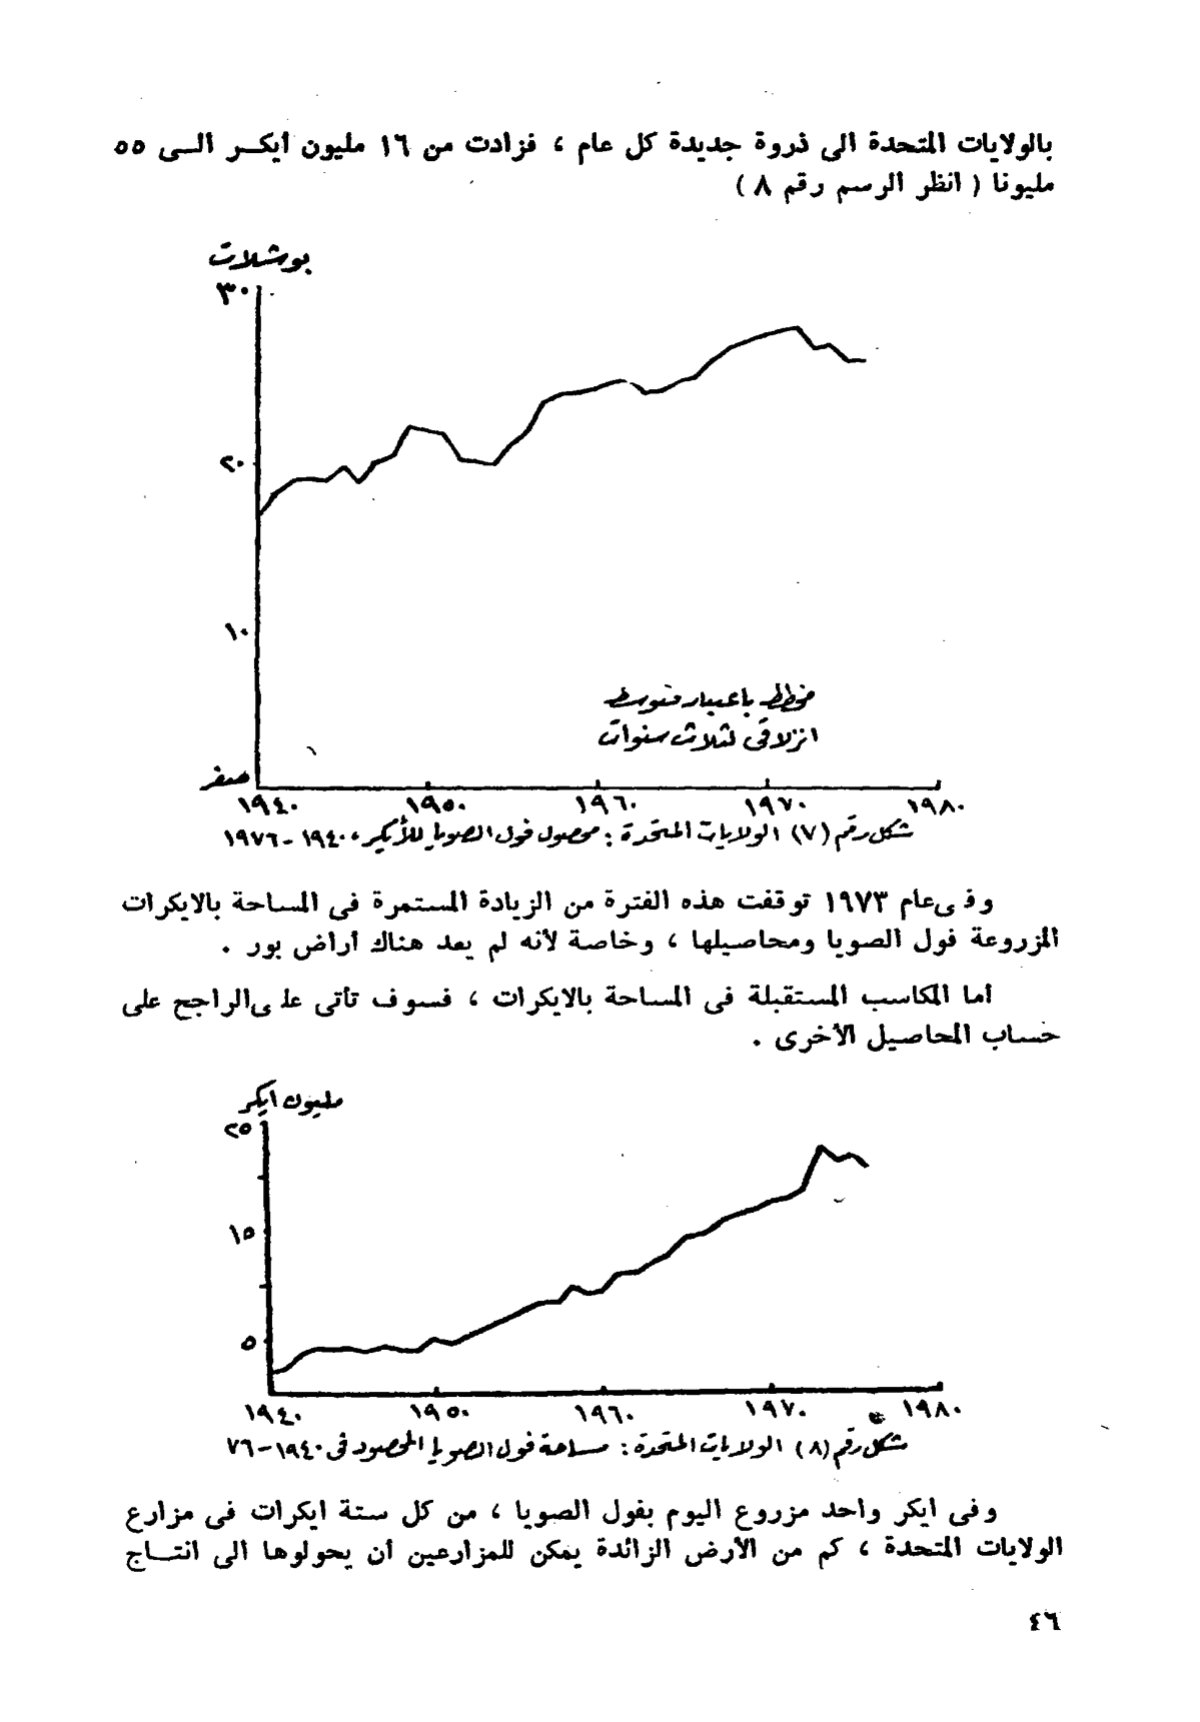 بالولايات المتحدة الى ذروة جديدة كل عام ، فزادت من ١٦ مليون أيكـر الـى ٥٥
مليونا ( انظر الرسم رقم ٨ )
بوشلات
٣٠
٢٠
١٠
صفر
مخطط باعتبار متوسط
انزلاقى لثلاث سنوات
١٩٤٠ ١٩٥٠ ١٩٦٠ ١٩٧٠ ١٩٨٠
شكل رقم (٧) الولايات المتحدة : محصول فول الصويا للأيكر ، ١٩٤٠ - ١٩٧٦
وفى عام ١٩٧٣ توقفت هذه الفترة من الزيادة المستمرة فى المساحة بالايكرات
المزروعة فول الصويا ومحاصيلها ، وخاصة لأنه لم يعد هناك أراض بور .
أما المكاسب المستقبلة فى المساحة بالايكرات ، فسوف تأتى على الراجح على
حساب المحاصيل الأخرى .
مليون ايكر
٢٥
١٥
٥
١٩٤٠ ١٩٥٠ ١٩٦٠ ١٩٧٠ ١٩٨٠
شكل رقم (٨) الولايات المتحدة : مساحة فول الصويا المحصود فى ١٩٤٠-٧٦
وفى ايكر واحد مزروع اليوم بفول الصويا ، من كل ستة ايكرات فى مزارع
الولايات المتحدة ، كم من الأرض الزائدة يمكن للمزارعين أن يحولوها الى انتـاج
٤٦